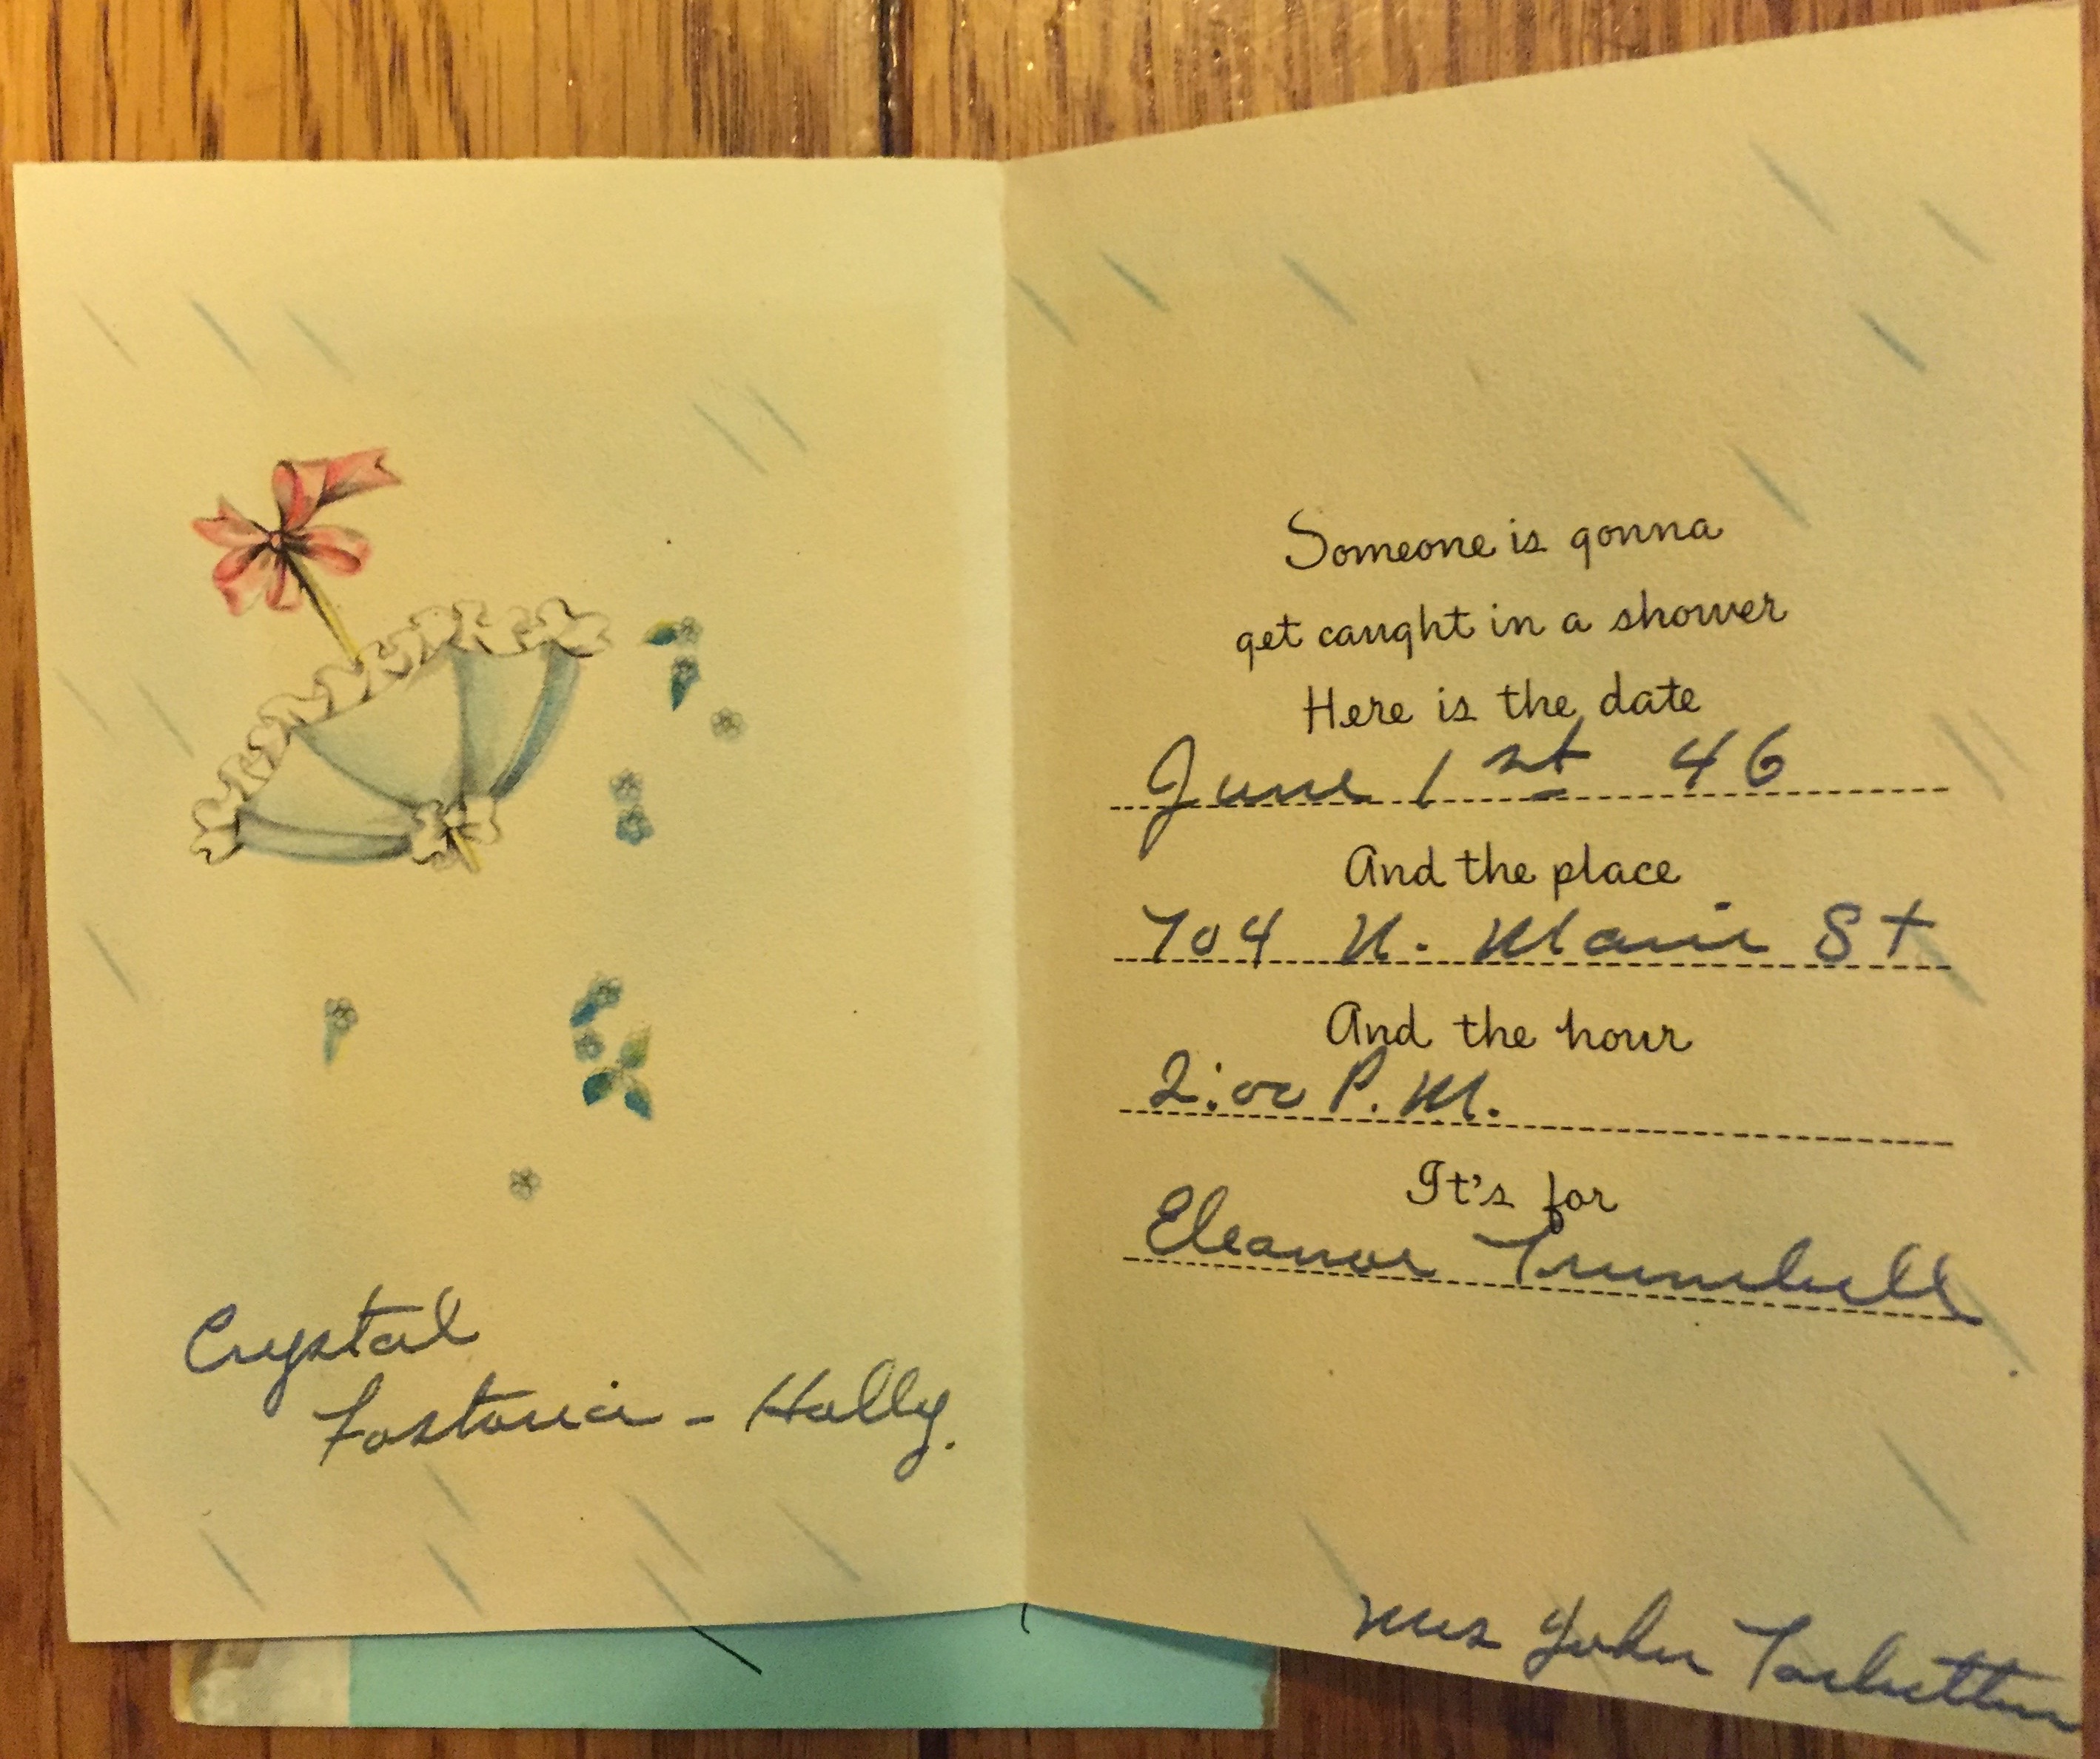 Crystal
Fostoria - Holly.
Someone is gonna
get caught in a shower
Here is the date
June 1st 46
And the place
704 N. Main St
And the hour
2:00 P.M.
It's for
Eleanor Trumbull
Mrs John